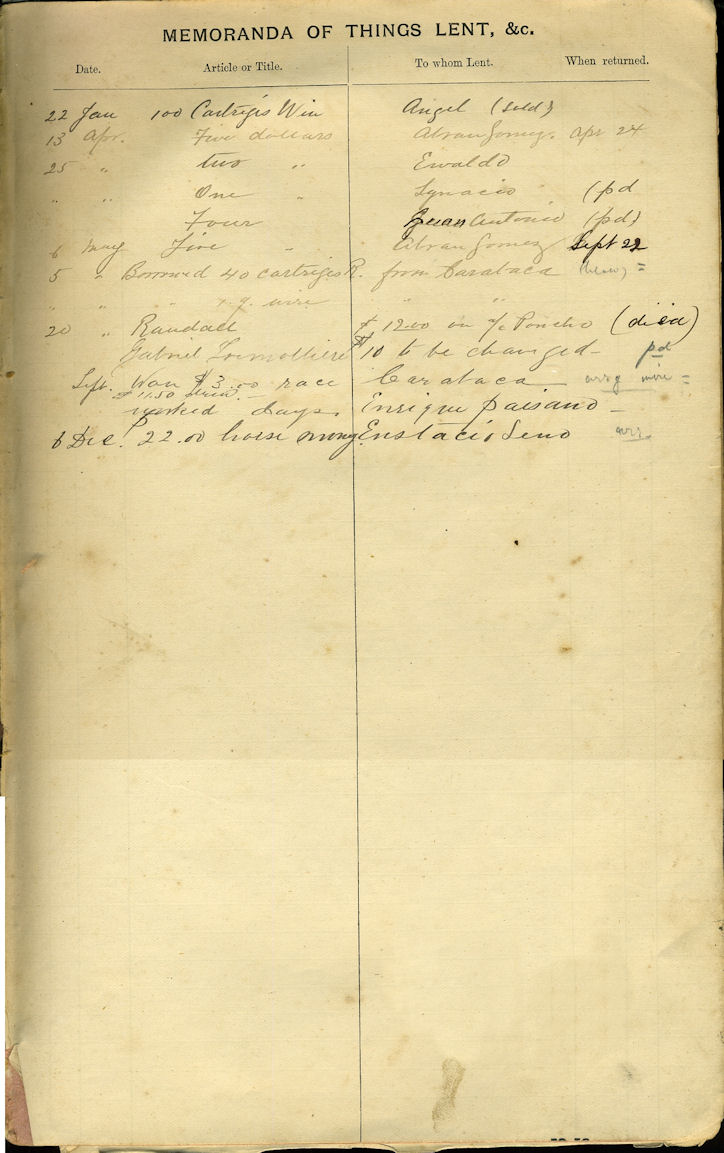 MEMORANDA OF THINGS LENT, &c.
Date. Article or Title. To whom Lent. When returned.
22 Jan 100 Cartrigis Win Angel (sold)
13 Apr. Five dollars Abran Gomez. Apr 24
25 " two " Ewaldo
" " One " Ignacio (pd
Four Juan Antonio (pd)
6 May Five " Abran Gomez Sept 22
5 " Borrowed 40 cartriges R. from Carataca =
" " " wire " "
20 " Randall $12.00 on a/c Poncho (died)
Gabriel $10 to be changed - pd
Sept. Won $3.00 race Carataca - wire =
$11.50
worked days. Enrique paisano -
6 Dec. 22.00 horse mony Eustacio